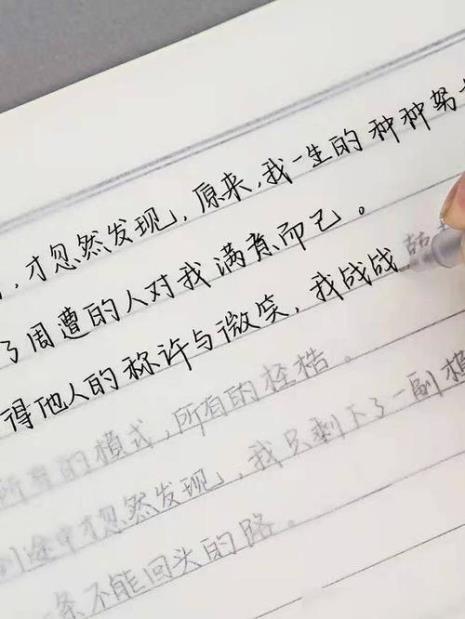 ,才忽然发现,原来,我一生的种种努
了周遭的人对我满意而已。
得他人的称许与微笑,我战战
所有的模式,所有的桎梏。
途中才忽然发现,我只剩下了一副模
条不能回头的路。